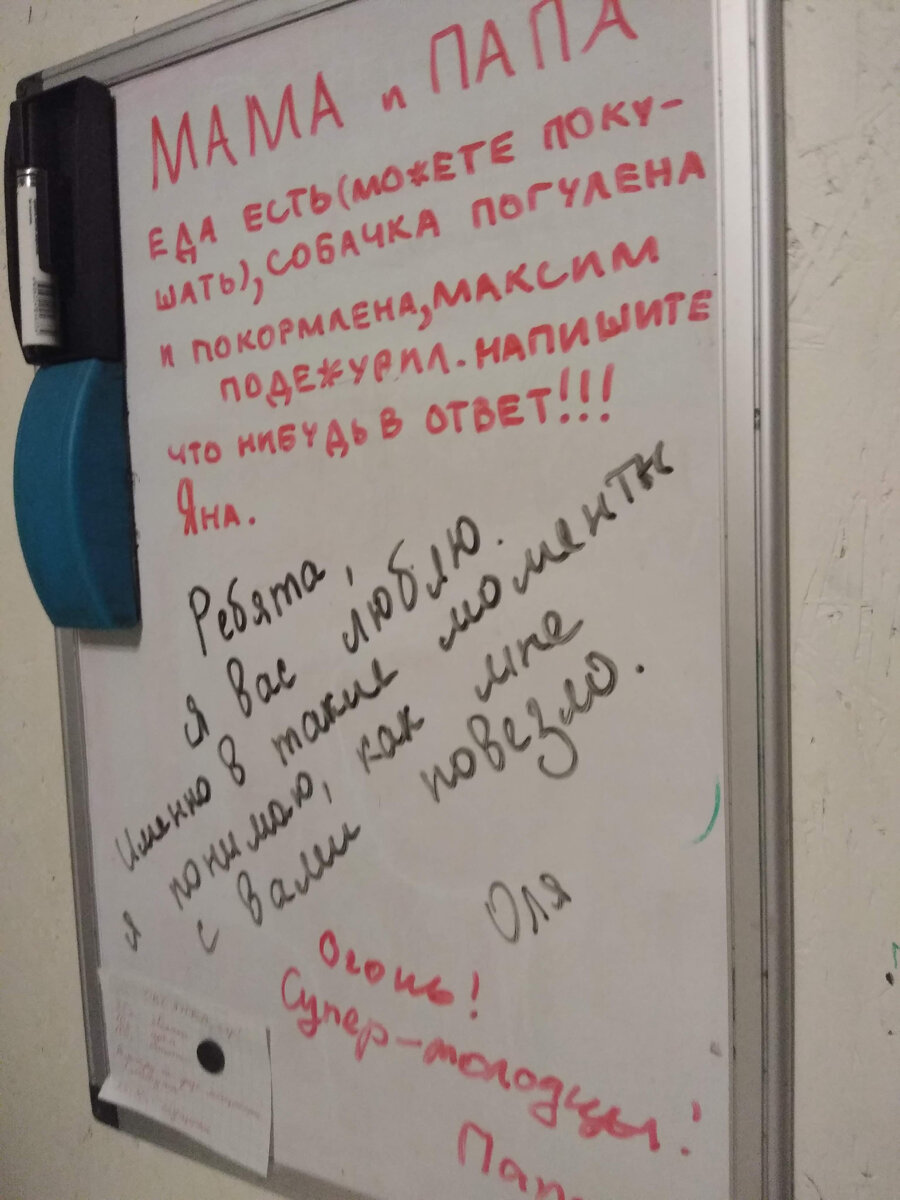 МАМА и ПАПА
ЕДА ЕСТЬ(МОЖЕТЕ ПОКУ-
ШАТЬ), СОБАЧКА ПОГУЛЕНА
И ПОКОРМЛЕНА, МАКСИМ
ПОДЕЖУРИЛ. НАПИШИТЕ
ЧТО НИБУДЬ В ОТВЕТ!!!
ЯНА.
Ребята,
я вас люблю.
Именно в такие моменты
я понимаю, как мне
с вами повезло.
Оля
Огонь!
Супер-молодцы!
Пап